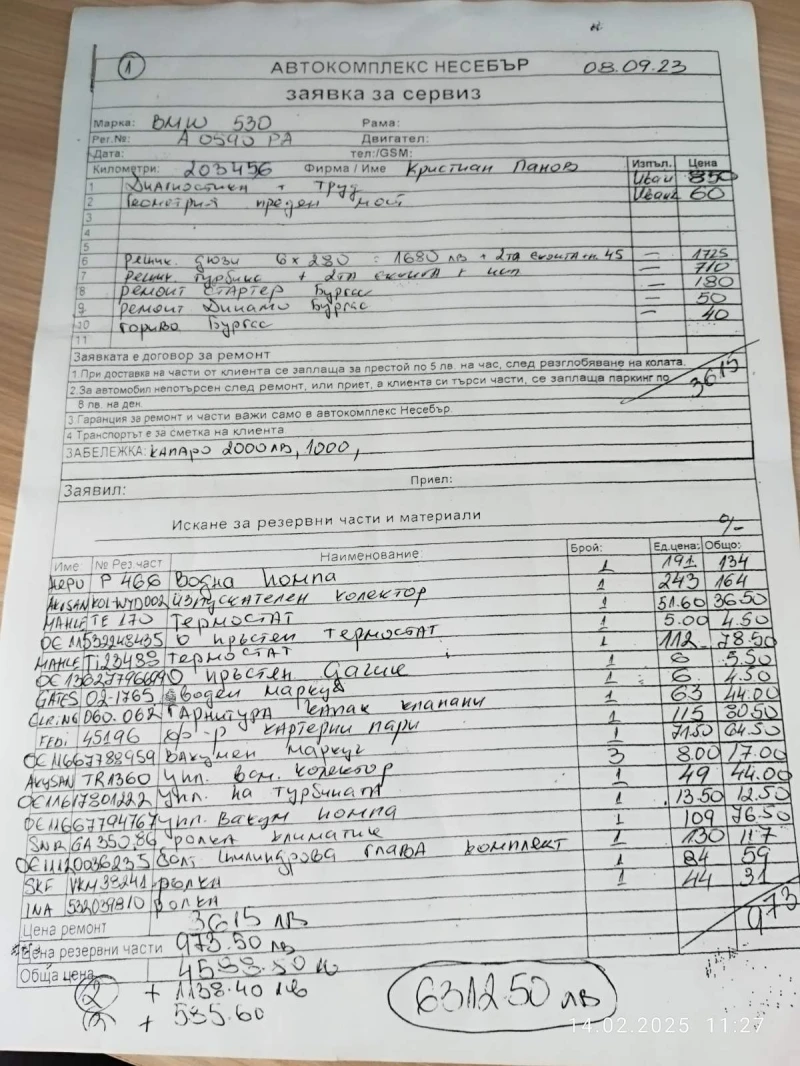 1 АВТОКОМПЛЕКС НЕСЕБЪР 08.09.23
заявка за сервиз
Марка: BMW 530 Рама:
Рег.№: А 0590 РА Двигател:
Дата: тел:/GSM:
Километри: 203456 Фирма / Име Кристиан Панов Изпъл. Цена
1 Диагностики + Труд Иван 850
2 Геометрия преден мост Иван 60
3
4
5
6 рецик. дюзи 6 x 280 = 1680 лв + 2та екоита 45 — 1725
7 рецик. турбинс + 2та екоита + — 710
8 ремоит СТАРТЕР Бургас — 180
9 ремоит Динамо Бургас — 50
10 гориво Бургас — 40
11
Заявката е договор за ремонт
1.При доставка на части от клиента се заплаща за престой по 5 лв. на час, след разглобяване на колата. 3615
2.За автомобил непотърсен след ремонт, или приет, а клиента си търси части, се заплаща паркинг по
8 лв. на ден.
3.Гаранция за ремонт и части важи само в автокомплекс Несебър.
4.Транспортът е за сметка на клиента.
ЗАБЕЛЕЖКА: КАПАРО 2000 лв, 1000,
Заявил: Приел:
Искане за резервни части и материали
Име № Рез.част Наименование: Брой: Ед.цена: Общо:
HEPU P 466 Водна помпа 1 191 134
AKUSAN KOL-WYD002 изпускателен колектор 1 243 164
MAHLE TE 170 ТЕРМОСТАТ 1 51.60 36.50
OE 11532248435 О пръстен ТЕРМОСТАТ 1 5.00 4.50
MAHLE TI23488 ТЕРМОСТАТ 1 112 78.50
О пръстен 1 6 5.50
GATES 02-1765 воден маркуч 1 6 4.50
060.062 ГАРНИТУРА КАПАК клапани 1 63 44.00
FEBI 45196 ф-р КАРТЕРНИ пари 1 115 80.50
OE 11667788959 Вакумен маркуч 1 71.50 64.50
AKUSAN TR1360 упл. Всм. колектор 3 8.00 17.00
OE 11617801222 упл. на турбината 1 49 44.00
OE 11667794767 упл. Вакум помпа 1 13.50 12.50
SNR GA350.86 ролка климатик 1 109 76.50
OE 11120036235 болт цилиндрова глава комплект 1 130 117
SKF VKM38241 ролка 1 84 59
INA 532039810 ролка 1 44 31
Цена ремонт 3615 лв 973
Цена резервни части 973.50 лв
Обща цена 4588.50 лв
2 + 1138.40 лв 6312.50 лв
+ 585.60
14.02.2025 11:27